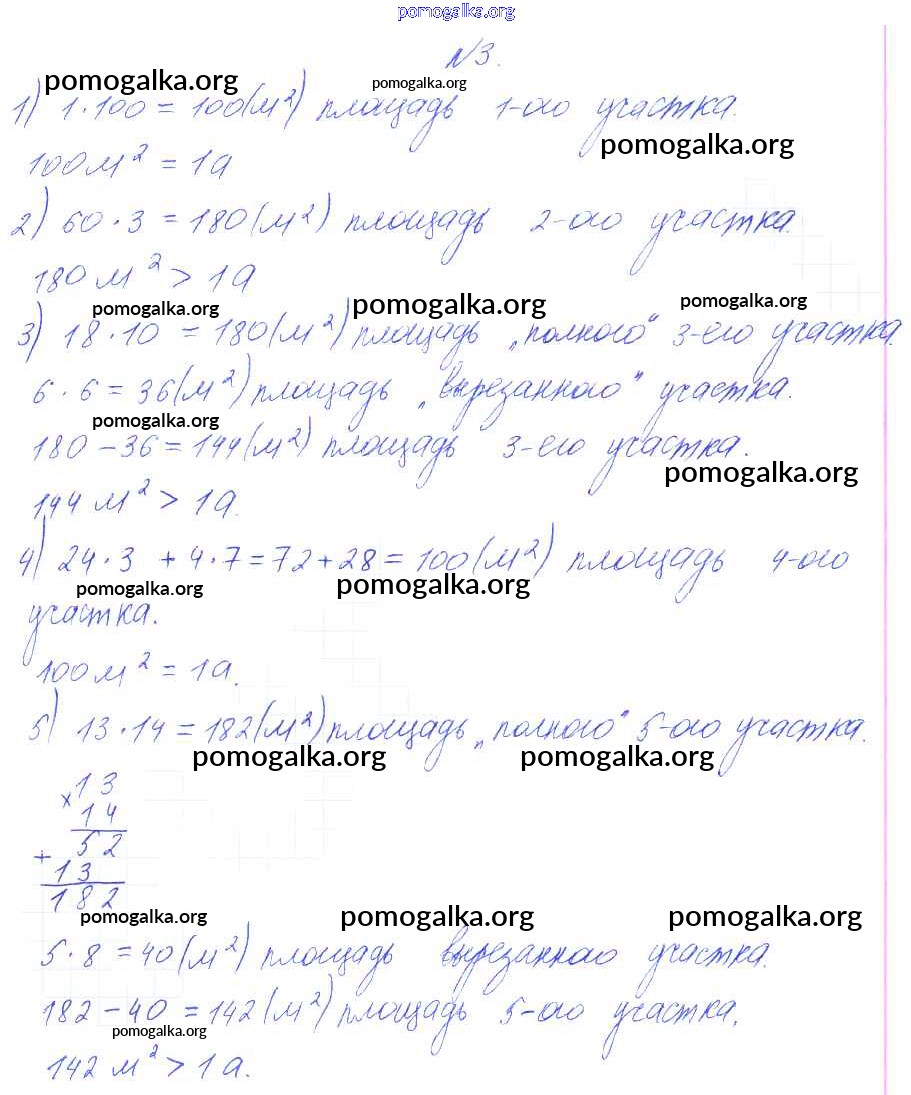 pomogalka.org
№3.
pomogalka.org pomogalka.org
1) 1·100 = 100(м²) площадь 1-ого участка.
pomogalka.org
100м² = 1а
2) 60·3 = 180(м²) площадь 2-ого участка.
180 м² > 1а
pomogalka.org pomogalka.org pomogalka.org
3) 18·10 = 180(м²) площадь „полного“ 3-его участка.
6·6 = 36(м²) площадь „вырезанного“ участка.
pomogalka.org
180 − 36 = 144(м²) площадь 3-его участка.
pomogalka.org
144 м² > 1а.
4) 24·3 + 4·7 = 72 + 28 = 100(м²) площадь 4-ого
pomogalka.org pomogalka.org
участка.
100м² = 1а.
5) 13·14 = 182(м²) площадь „полного“ 5-ого участка.
pomogalka.org pomogalka.org
× 13
14
+ 52
13
182
pomogalka.org pomogalka.org pomogalka.org
5·8 = 40(м²) площадь вырезанного участка.
182 − 40 = 142(м²) площадь 5-ого участка.
pomogalka.org
142 м² > 1а.